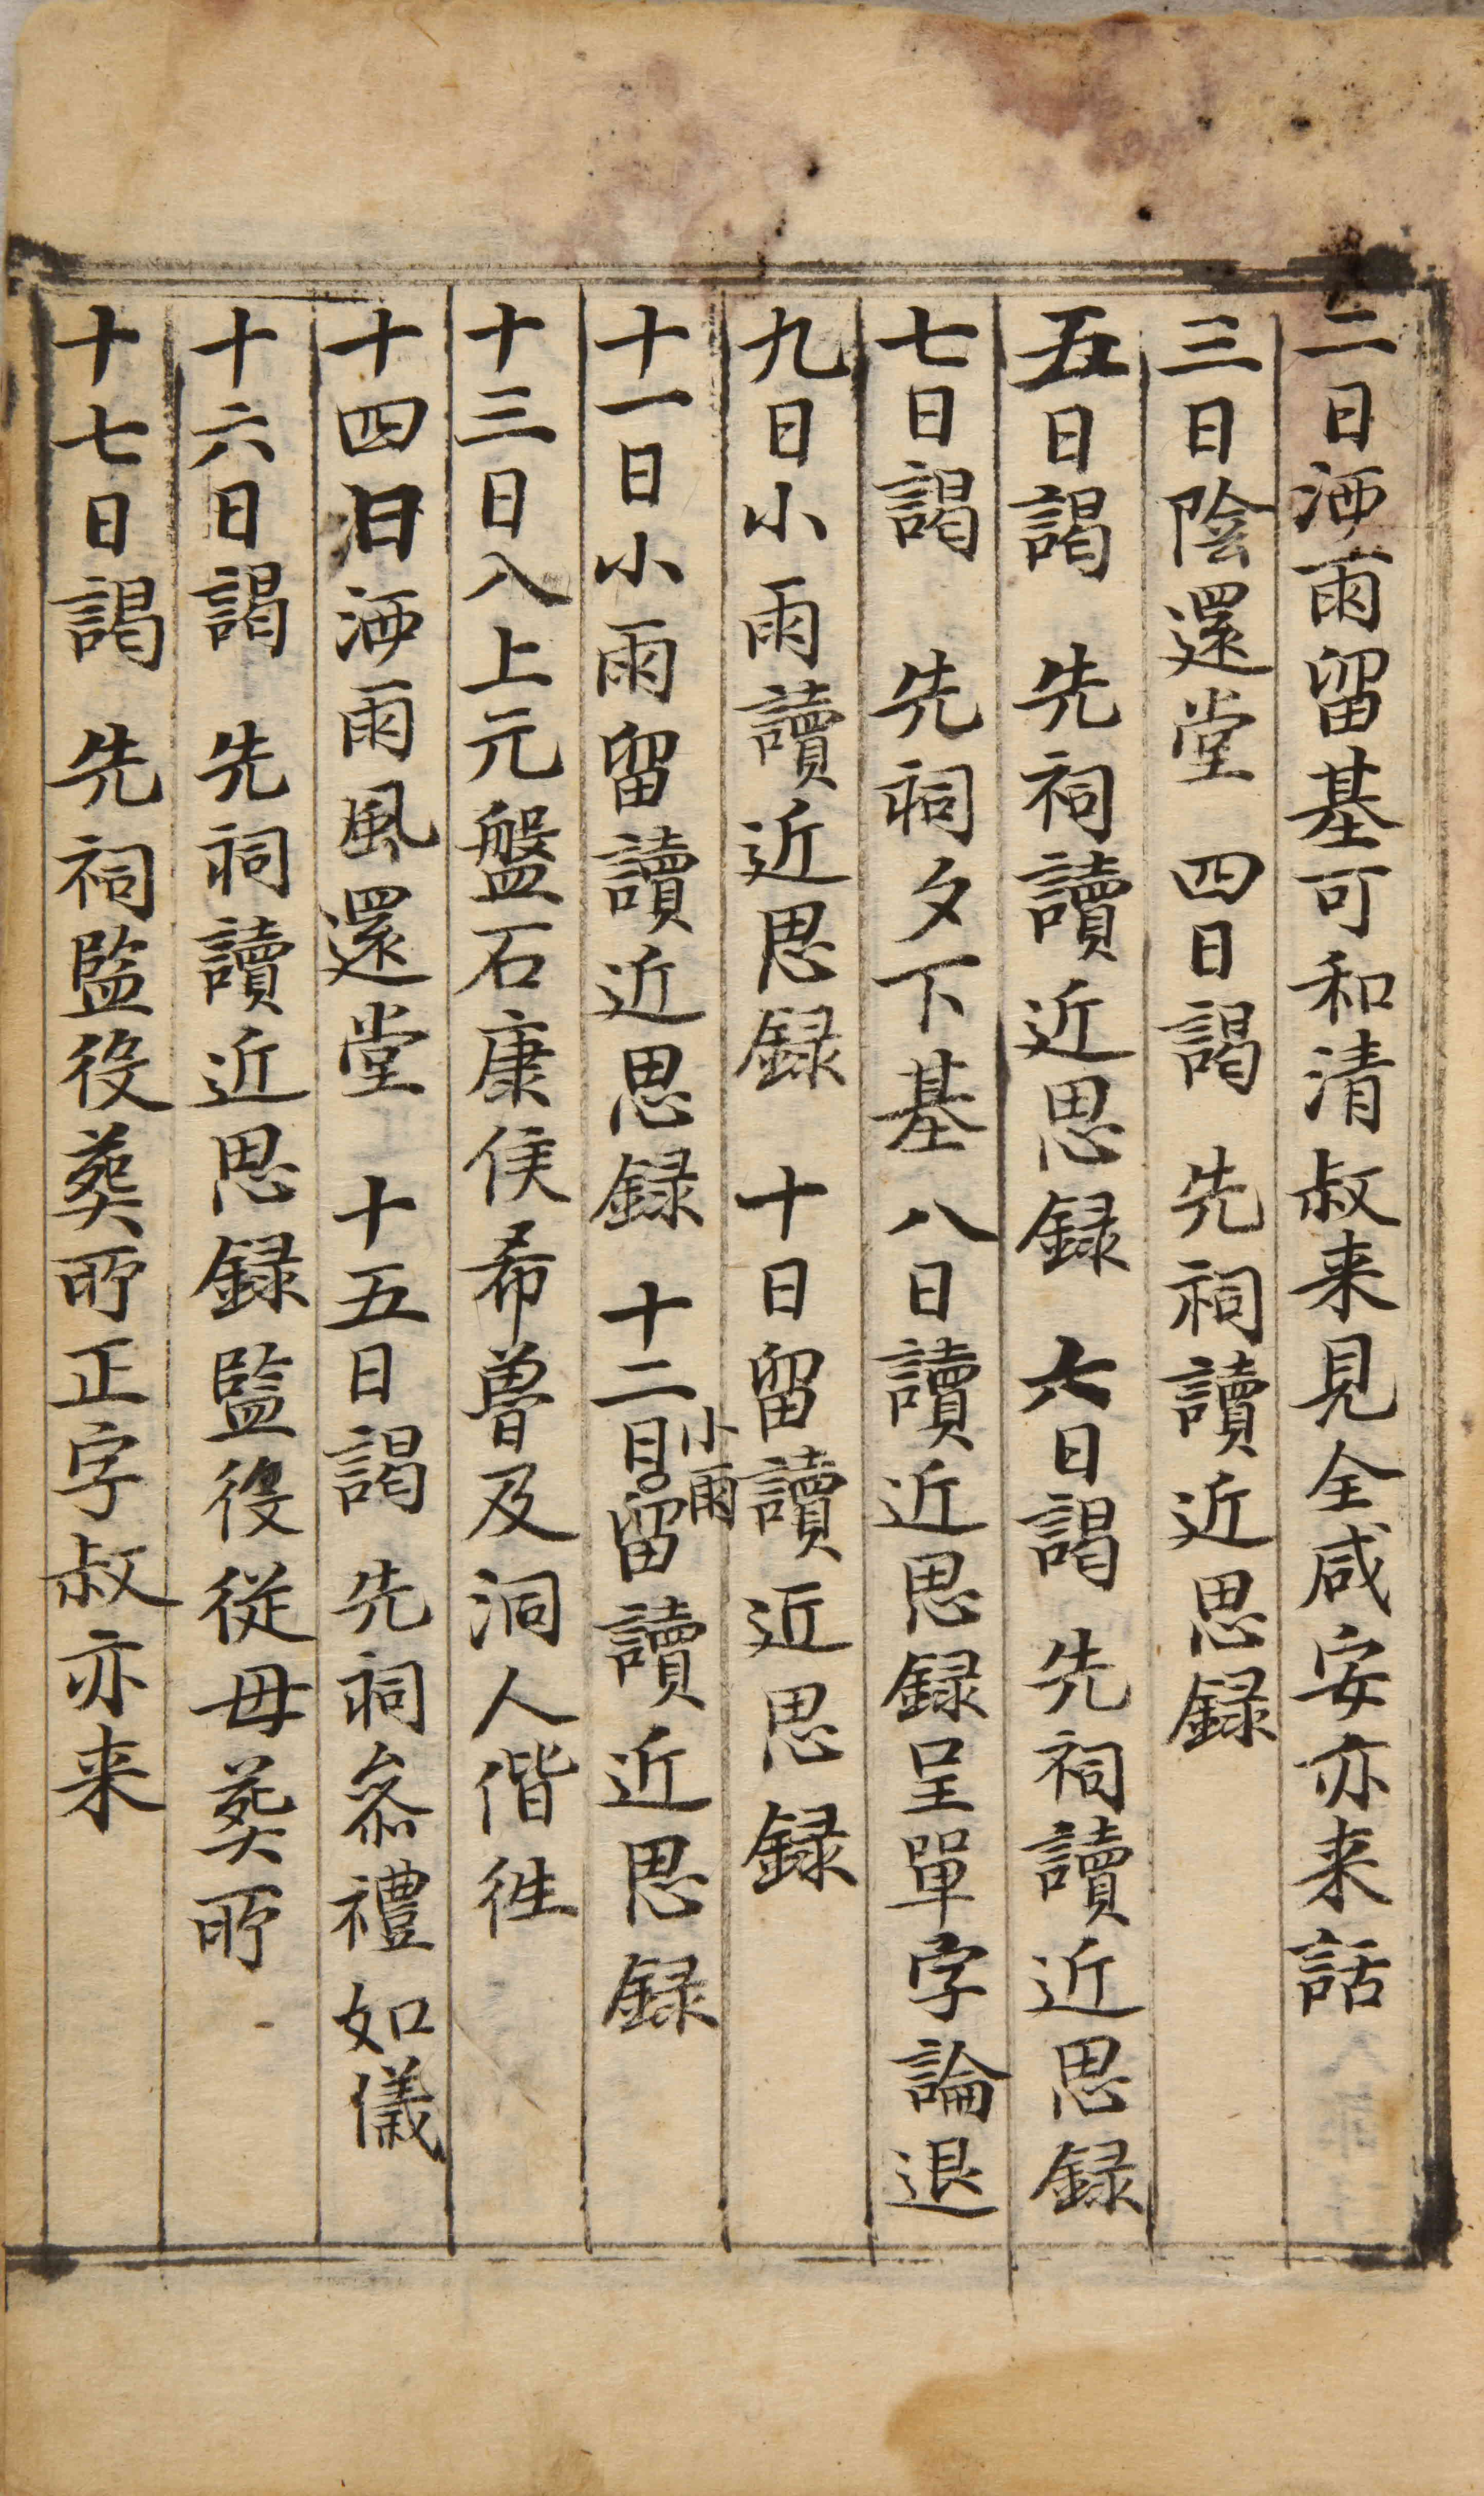 二日洒雨留基可和清叔来見全咸安亦来話
三日陰還堂 四日謁 先祠讀近思録
五日謁 先祠讀近思録 六日謁 先祠讀近思録
七日謁 先祠夕下基 八日讀近思録呈單字論退
九日小雨讀近思録 十日留讀近思録
十一日小雨留讀近思録 十二日小雨留讀近思録
十三日入上元盤石康侯希曽及洞人偕徃
十四日洒雨風還堂 十五日謁 先祠叅禮如儀
十六日謁 先祠讀近思録監役從母葬所
十七日謁 先祠監役葬所正字叔亦来